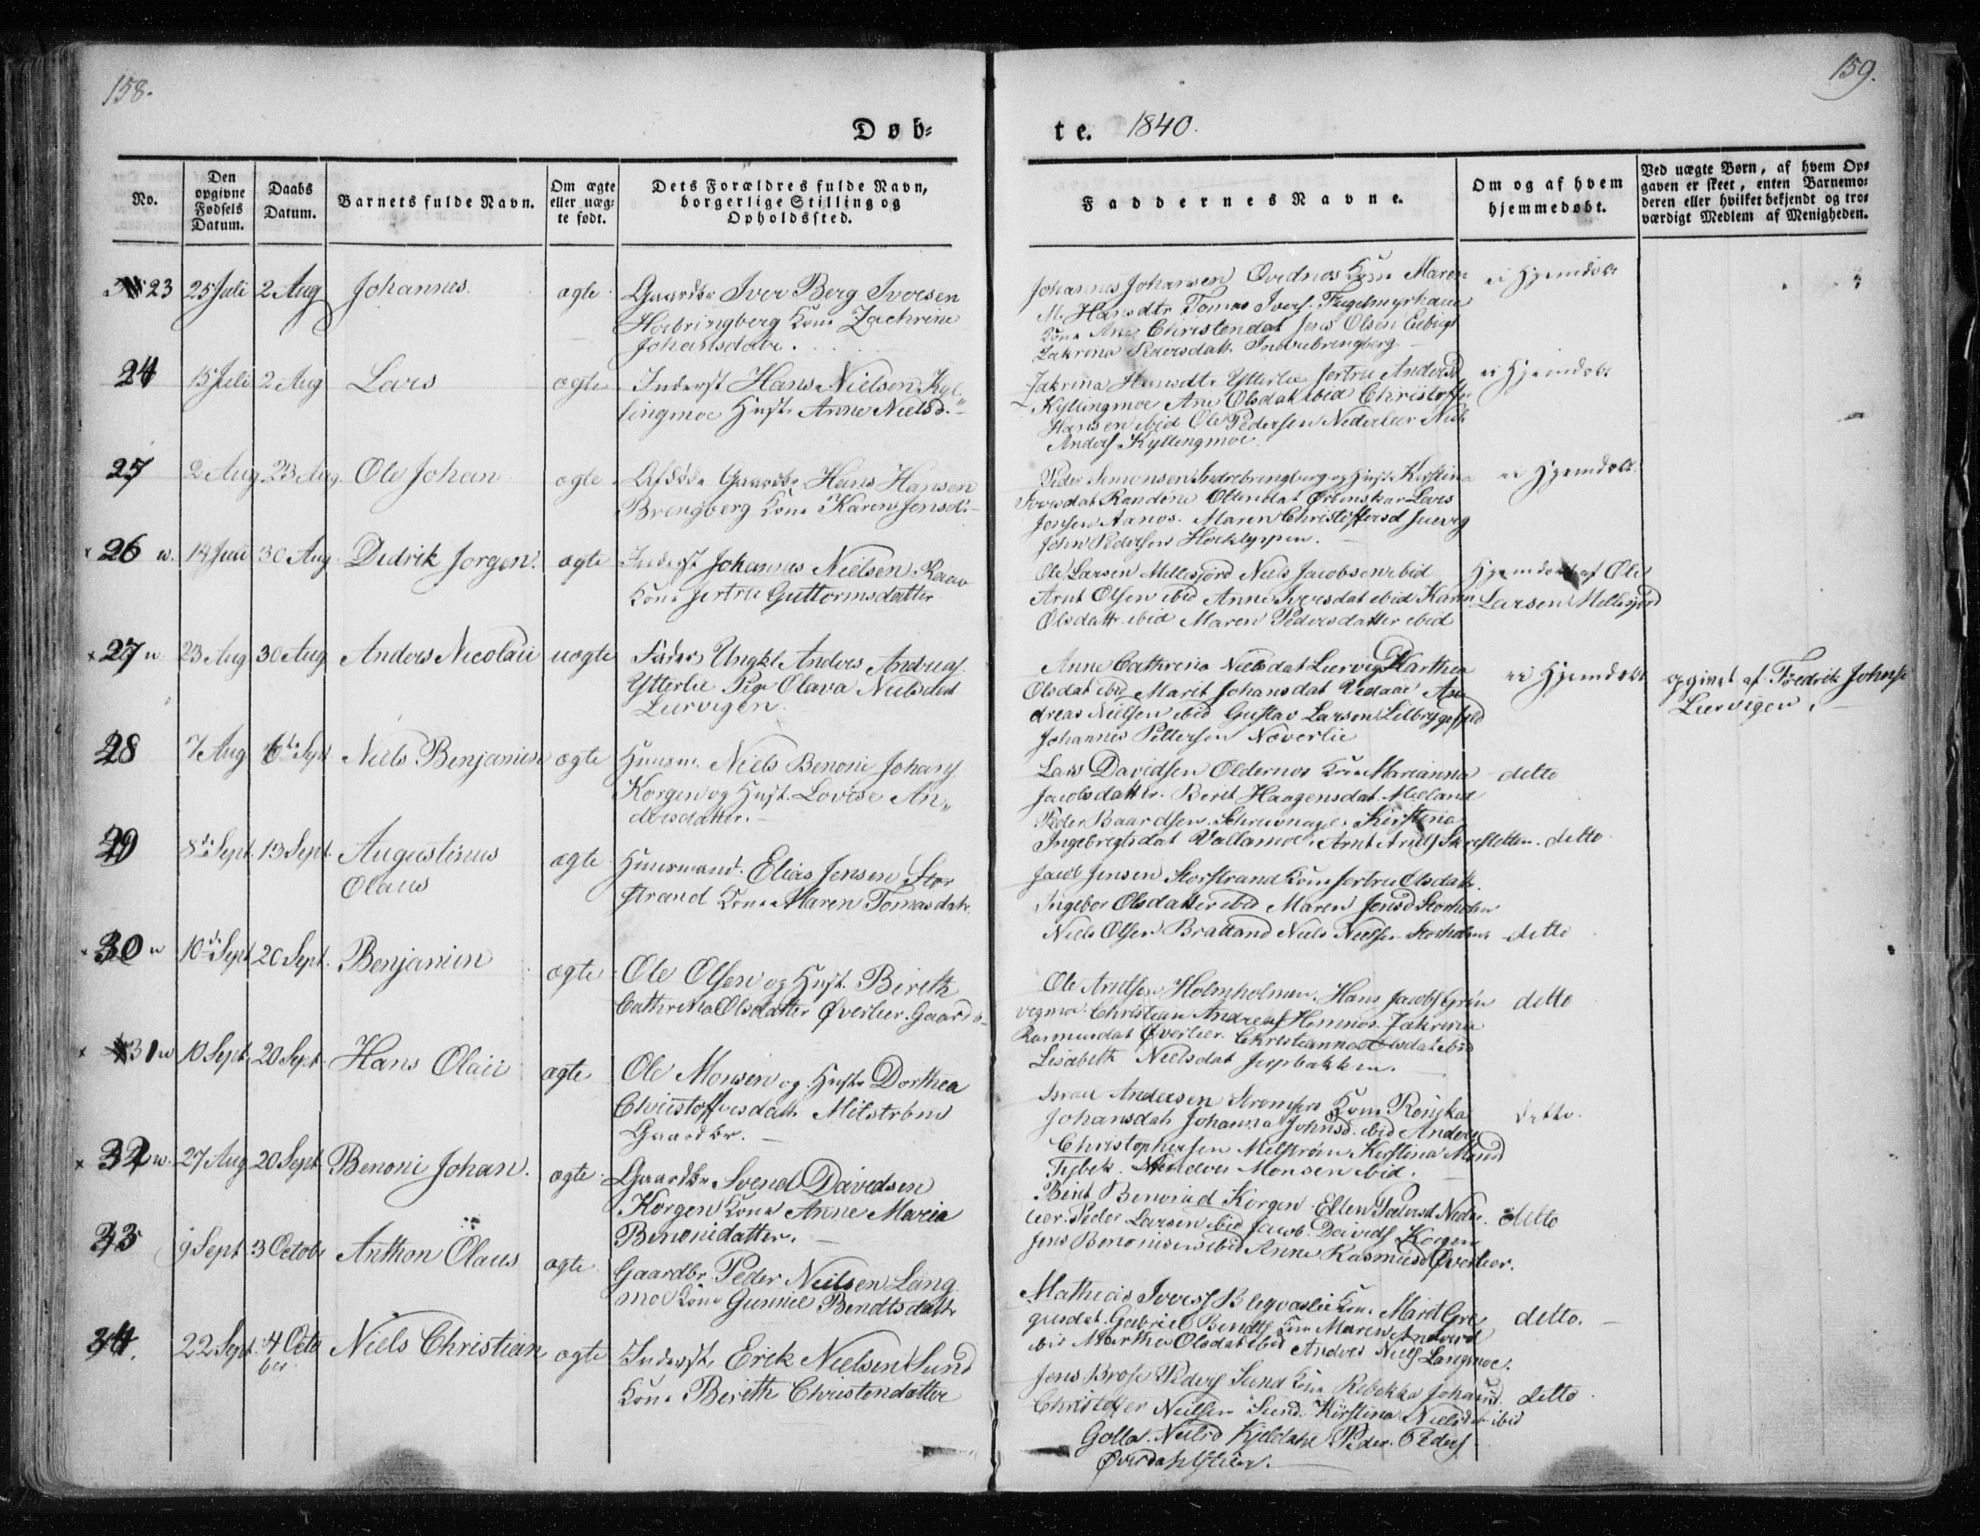 158.
159.
Døb-
te. 1840.
No.
Den opgivne Fødsels Datum.
Daabs Datum.
Barnets fulde Navn.
Om ægte eller uægte født.
Dets Forældres fulde Navn, borgerlige Stilling og Opholdssted.
Faddernes Navne.
Om og af hvem hjemmedøbt.
Ved uægte Børn, af hvem Opgaven er skeet, enten Barnemoderen eller hvilket bekjendt og troværdigt Medlem af Menigheden.
23 25 Juli 2 Aug Johannes. ægte Gaardbr Iver Berg Iversen
Kone Zachrine
Johansdatr.
Johannes Johansen Kone Maren
M. Hansdtr Tomas Ivers.
Kone Ane Christendat Jens Olsen
Zakrina Pedersdatt. Indrebringberg
ei Hjemdøbt
24 15 Juli 2 Aug Lars ægte Inderst Hans Nielsen Kyl-
lingmoe Hust. Anne Nielsd.
Zakrina Hansdtr Ytterlie Jertru Andersd
Kyllingmoe Ane Olsdat ibid Christoffer
Hansen ibid Ole Pedersen Nederleer Niels
Anders Kyllingmoe.
ei Hjemdøbt
25 2 Aug 23 Aug Ole Johan ægte Afdøde Gaardbr Hans Hansen
Bringberg Kone Karen Jensd.
Peder Simonsen Indrebringberg og Hust Kirstina
Iversdat Randine Lars
Jensen Aanos. Maren Christoffersd
John Pedersen
ei Hjemdøbt
× 26 w. 14 Juni 30 Aug. Didrik Jørgen. ægte Inderst Johannes Nielsen Raav
Kone Jertru Guttormsdatter
Ole Larsen Millesjord Niels Jacobsen ibid
Arnt Olsen ibid Anne Iversdat ibid Karen
Olsdatt. ibid Maren Pedersdatter ibid
Hjemdøbt af Ole
Larsen Millesjord
× 27 w 23 Aug 30 Aug Anders Nicolai uægte Fader Ungkl Anders Andreas.
Ytterlie Pige Olava Nielsdat
Lurvigen.
Anne Cathrina Nielsdat Lurvig Marthea
Olsdat ibid Marit Johansdat Vedaae An-
dreas Nielsen ibid Gustav Larsen
Johannis Pettersen Næverlie
ei Hjemdøbt opgivet af Fredrik Johns.
Lurvigen.
28 7 Aug 6te Sept Niels Benjamin ægte Huusm. Niels Benoni Johans.
Korgen og Hust. Lovise An-
dersdatter.
Lars Davidsen Oldernos Kone Marianna
Jacobsdatter. Berit Haagensdat
Peder Baardsen Kirstina
Ingebregtsdat Vallamoe. Arnt Arntss
detto
29 8de Sept. 13 Sept. Augustinus
Olaus
ægte Huusmand. Elias Jensen Stor
strand Kone Maren Tomasdatr.
Jacob Jensen Storstrand Kone Jertru Olsdatt.
Ingebor Olsdatter ibid Maren Jensd Storholm
Niels Olsen Bratland Niels Nielsen Storholm
detto
× 30 w 10de Sept 20 Sept. Benjamin ægte Ole Olsen og Hust. Bireth
Cathrina Olsdatter Øverleer. Gaardb.
Ole Arntsen Holmholmen. Hans Jacobs
Christian Andreas Hemnos. Zakrina
Rasmusdat Øverleer. Christianna Olsdat ibid
Lisabeth Nielsdat Jerpbakken.
detto
detto
× 31 w 10 Sept. 20 Sept. Hans Olaii ægte Ole Monsen og Hust Dorthea
Christoffersdatt. Milstrøm
Gaardbr.
Israel Andersen Kone
Johansdat Johanna Johnsd ibid Anders
Christophersen Melstrøm Kirstina
Anders Monsen ibid.
detto.
× 32 w. 27 Aug 20 Sept Benoni Johan. ægte Gaardbr Svend Davidsen
Korgen Kone Anne Maria
Benonidatter.
Birit Benonid Korgen. Ellen Pedersd Neder-
leer. Peder Larsen ibid Jacob Davids Korgen
Jens Benonisen ibid Anne Rasmusd Øverleer.
detto
33 9 Sept. 3 Octobr Anthon Olaus ægte. Gaardbr. Peder Nielsen Lang
moe Kone Gunnil Bendtsdatt.
Mathias Iverss. Kone Marit Gre-
gusdat. Gabriel Bendts. Kone Maren Andersd
ibid Marthea Olsdat ibid Anders Niels Langmoe.
detto.
34. 22 Sept. 4 Octo
ber Niels Christian ægte Inderst. Erik Nielsen Lund
Kone Berith Christendatter
Jens Peders Lund Kone Rebekka Johansd.
Christoffer Nielsen Lund. Kirstina Nielsdt ibid
Nielsd Kjeldahl Peder Peders.
detto